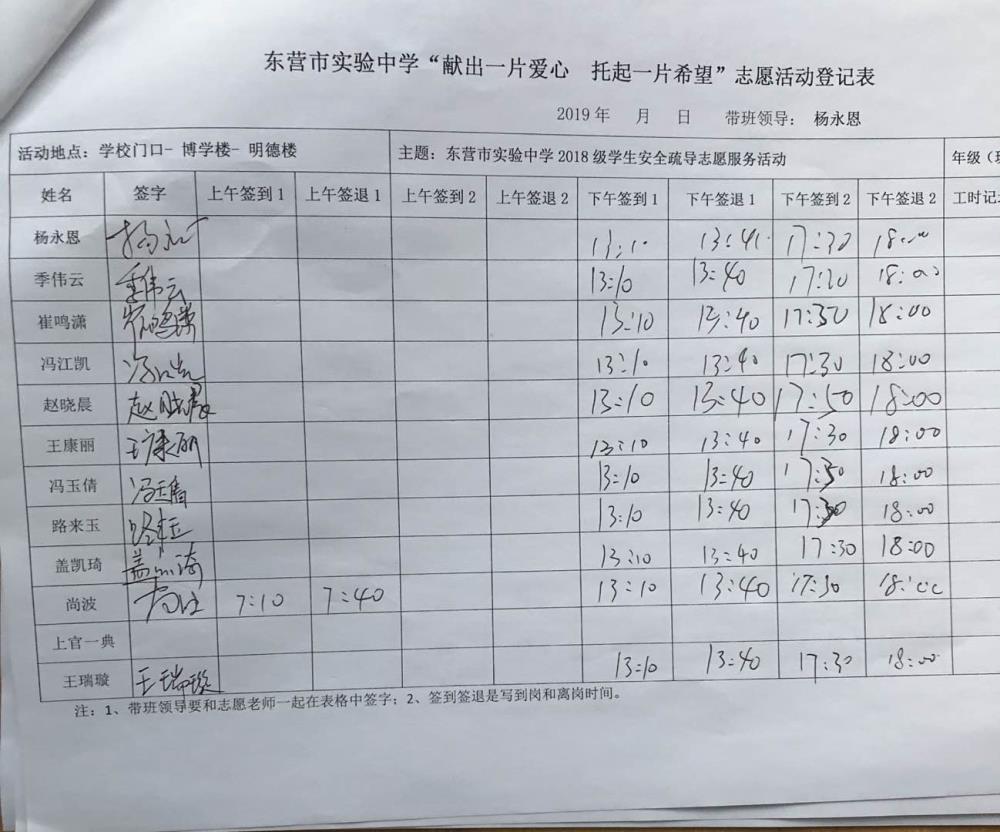 东营市实验中学“献出一片爱心 托起一片希望”志愿活动登记表
2019 年 月 日 带班领导： 杨永恩
活动地点：学校门口- 博学楼- 明德楼 主题：东营市实验中学 2018 级学生安全疏导志愿服务活动 年级（
姓名 签字 上午签到 1 上午签退 1 上午签到 2 上午签退 2 下午签到 1 下午签退 1 下午签到 2 下午签退 2 工时记
杨永恩 13:10 13:41 17:30 18:00
季伟云 季伟云 13:10 13:40 17:20 18:00
崔鸣潇 崔鸣潇 13:10 13:40 17:30 18:00
冯江凯 冯江凯 13:10 13:40 17:30 18:00
赵晓晨 赵晓晨 13:10 13:40 17:50 18:00
王康丽 王康丽 13:10 13:40 17:30 18:00
冯玉倩 冯玉倩 13:10 13:40 17:30 18:00
路来玉 路来玉 13:10 13:40 17:30 18:00
盖凯琦 盖凯琦 13:10 13:40 17:30 18:00
尚波 尚波 7:10 7:40 13:10 13:40 17:30 18:00
上官一典
王瑞璇 王瑞璇 13:10 13:40 17:30 18:00
注：1、带班领导要和志愿老师一起在表格中签字；2、签到签退是写到岗和离岗时间。